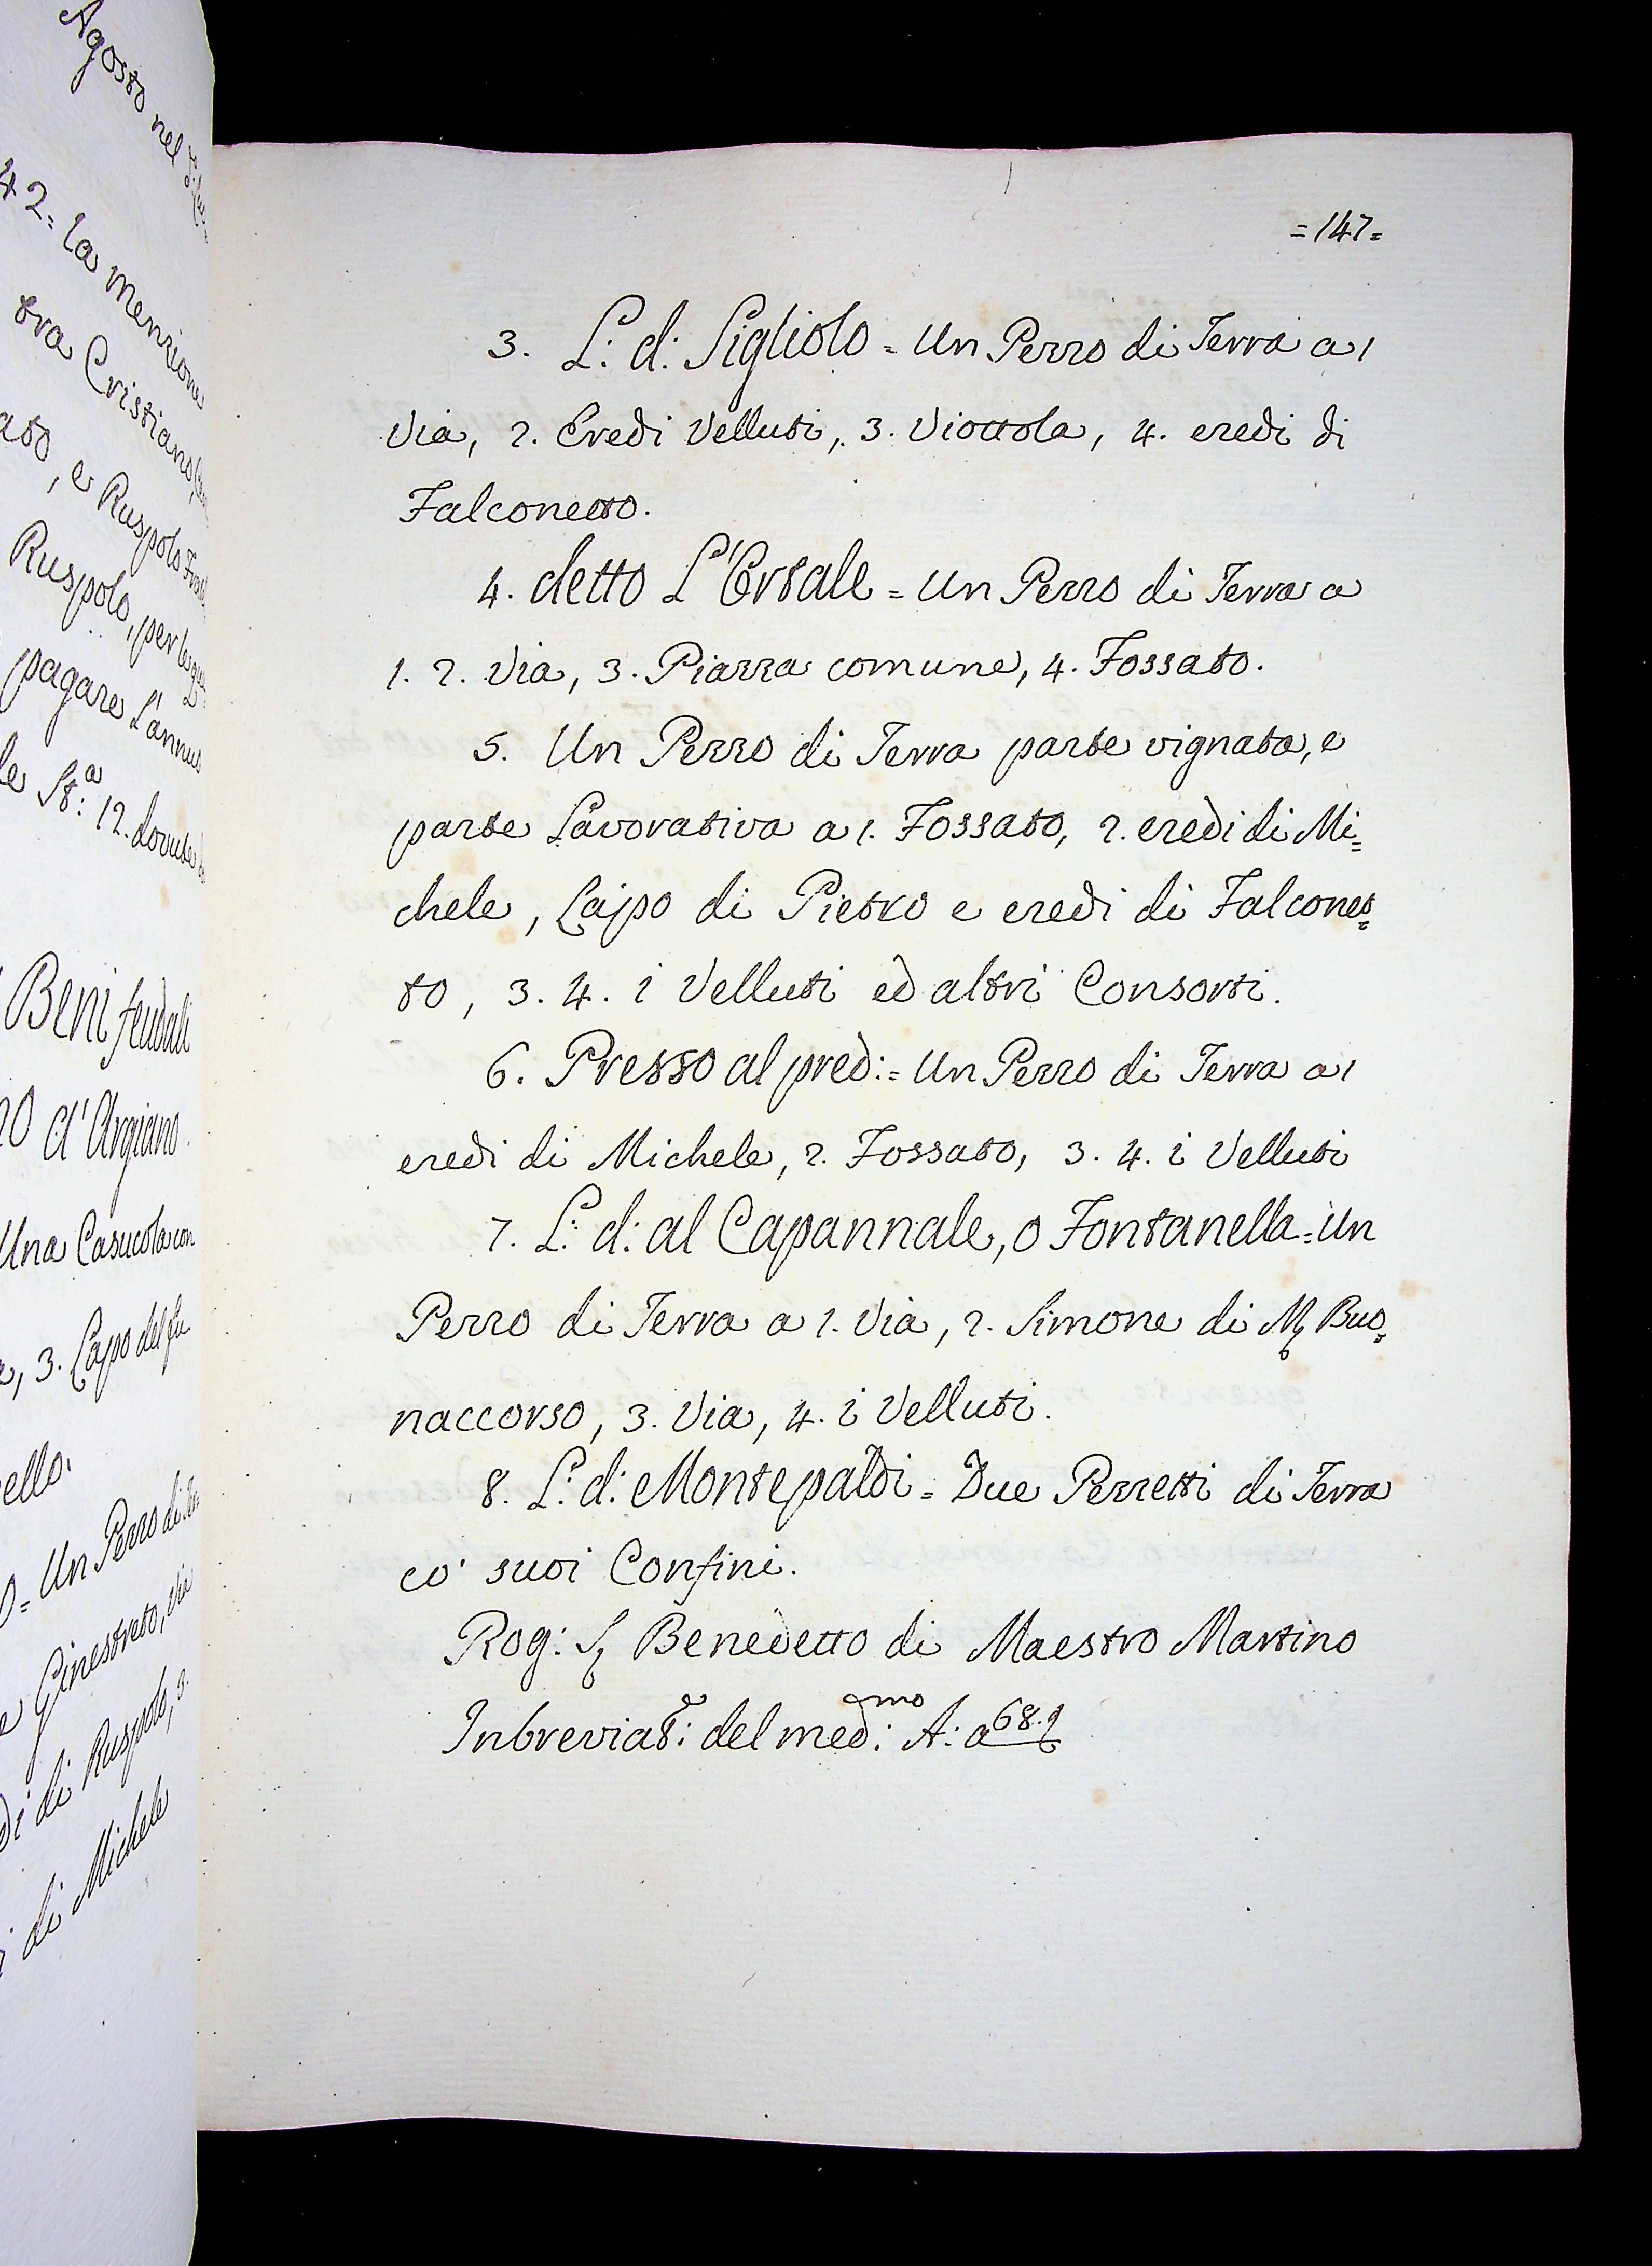 Agosto nel
42= la menzione
tra Cristiano
ato, e Ruspolo
Ruspolo, per le
pagare l'annuo
le St:ª 12. dovute
Beni feudali
d'Argiano.
Una Casucola con
3. Lapo del fu
ello.
= Un Pezzo di
e Ginestreto, via
di di Ruspolo, 3.
di Michele
=147=
3. L: d: Sigliolo = Un Pezzo di Terra a 1
Via, 2. Eredi Velluti, 3. Viottola, 4. eredi di
Falconetto.
4. detto L'Ortale = Un Pezzo di Terra a
1. 2. Via, 3. Piazza comune, 4. Fossato.
5. Un Pezzo di Terra parte vignata, e
parte Lavorativa a 1. Fossato, 2. eredi di Mi=
chele, Lapo di Pietro e eredi di Falconet=
to, 3. 4. i Velluti ed altri Consorti.
6. Presso al pred: = Un Pezzo di Terra a 1
eredi di Michele, 2. Fossato, 3. 4. i Velluti
7. L: d: al Capannale, o Fontanella = Un
Pezzo di Terra a 1. Via, 2. Simone di M Buo=
naccorso, 3. Via, 4. i Velluti.
8. L: d: Montepaldi = Due Pezzetti di Terra
co' suoi Confini.
Rog: S Benedetto di Maestro Martino
Inbreviat: del med:mo A: a 68.